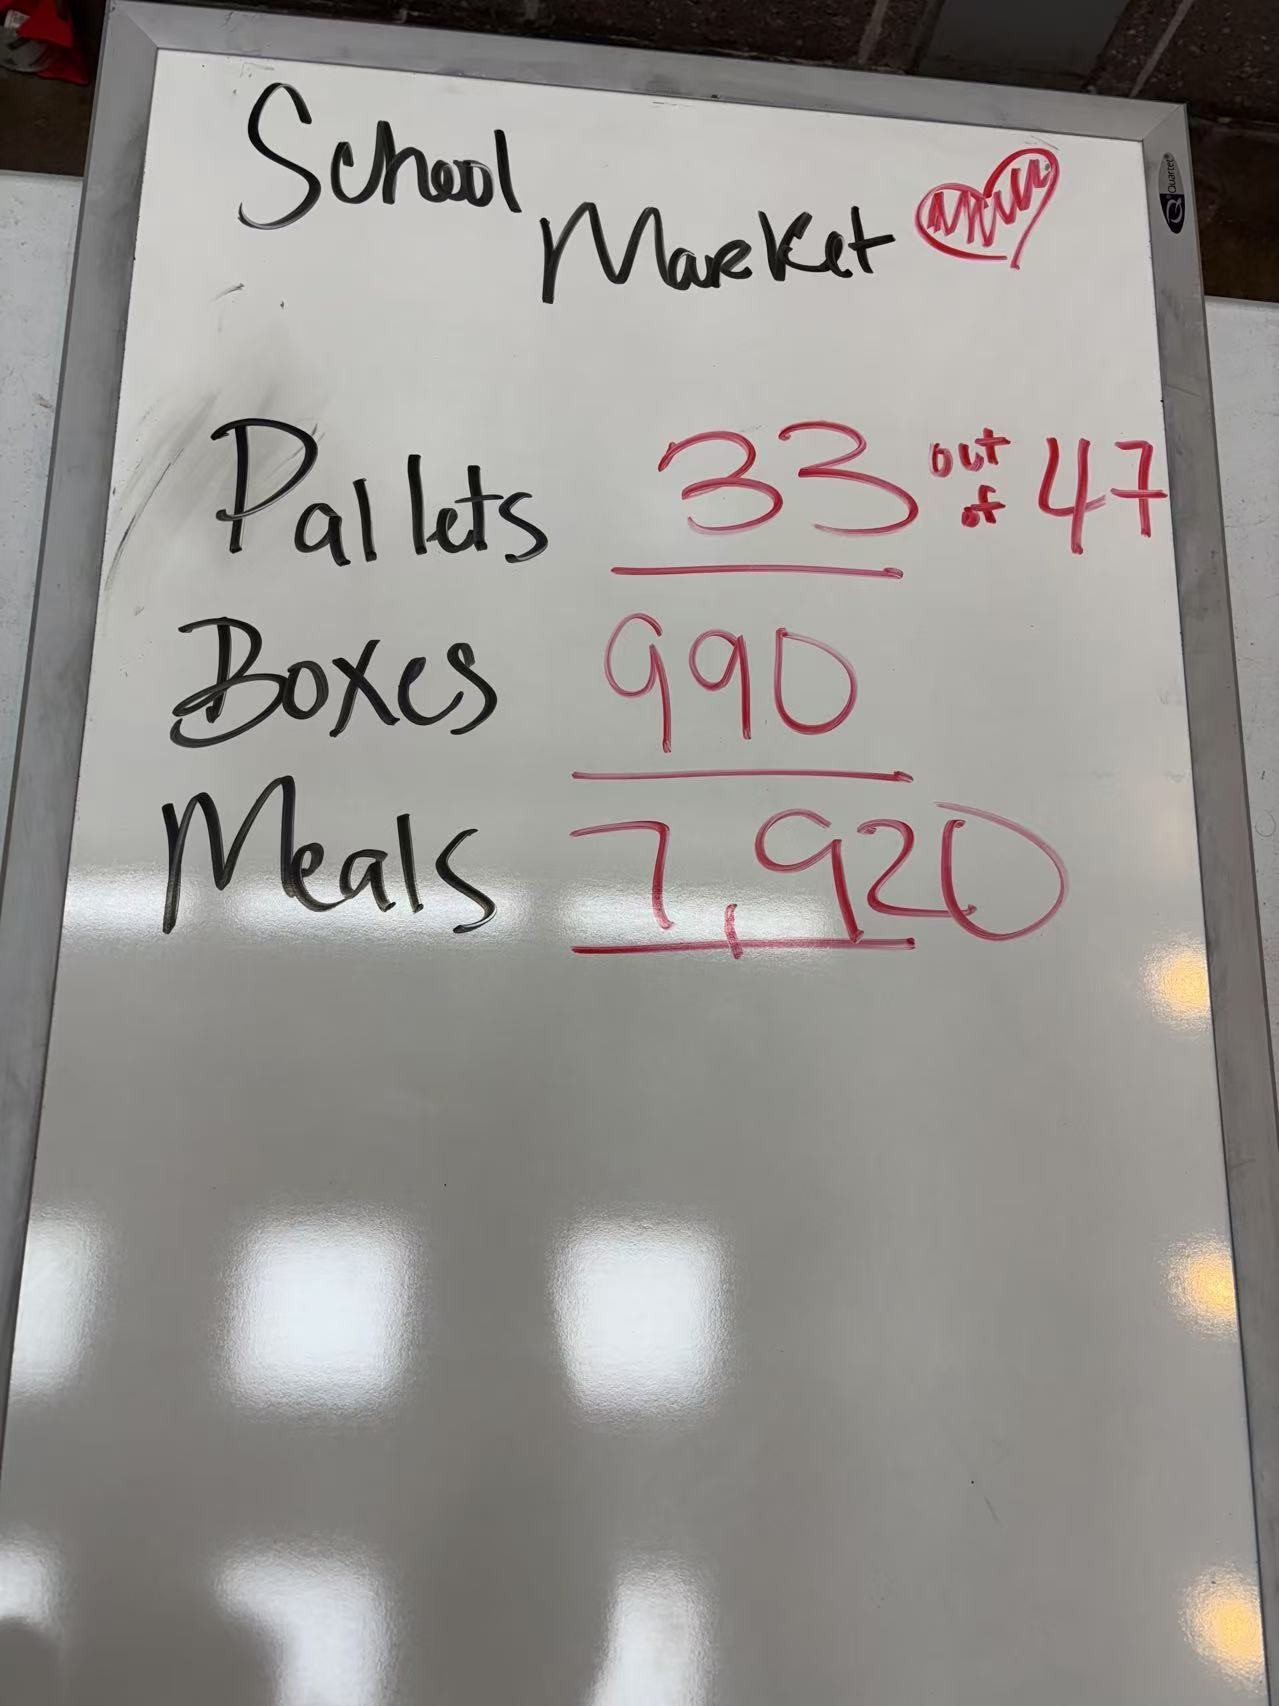 School
Market
Quartet
Pallets 33 out of 47
Boxes 990
Meals 7,920